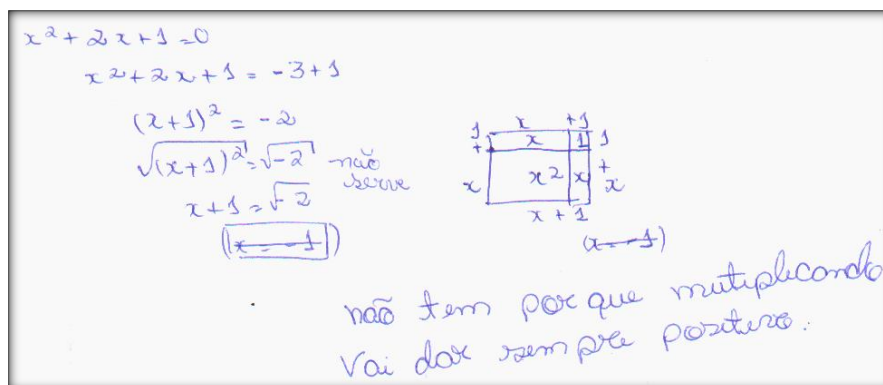 x² + 2x + 1 = 0
x² + 2x + 1 = -3 + 1
(x+1)² = -2
√(x+1)² = √-2 não
serve
x + 1 = √-2
(x = -1)
x +1
1 x 1 1
+ +
x x² x x
x + 1
(x = -1)
não tem por que mutiplicando
Vai dar sempre positivo.